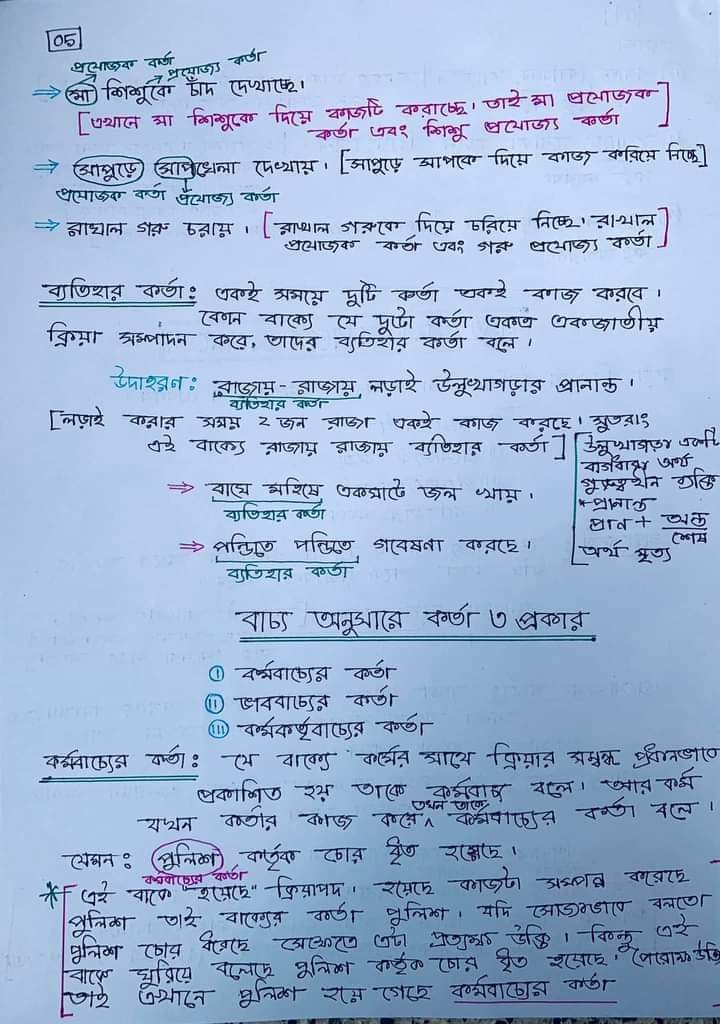 05
প্রযোজক কর্তা প্রযোজ্য কর্তা
⇒ মা শিশুকে চাঁদ দেখাচ্ছে।
[এখানে মা শিশুকে দিয়ে কাজটি করাচ্ছে। তাই মা প্রযোজক
কর্তা এবং শিশু প্রযোজ্য কর্তা]
⇒ সাপুড়ে সাপখেলা দেখায়। [সাপুড়ে সাপকে দিয়ে কাজ করিয়ে নিচ্ছে]
প্রযোজক কর্তা প্রযোজ্য কর্তা
⇒ রাখাল গরু চরায়। [রাখাল গরুকে দিয়ে চরিয়ে নিচ্ছে। রাখাল
প্রযোজক কর্তা এবং গরু প্রযোজ্য কর্তা]
ব্যতিহার কর্তা: একই সময়ে দুটি কর্তা একই কাজ করবে।
কোন বাক্যে যে দুটো কর্তা একত্র একজাতীয়
ক্রিয়া সম্পাদন করে, তাদের ব্যতিহার কর্তা বলে।
উদাহরণ: রাজায়-রাজায় লড়াই উলুখাগড়ার প্রানান্ত।
ব্যতিহার কর্তা
[লড়াই করার সময় ২ জন রাজা একই কাজ করছে। সুতরাং
এই বাক্যে রাজায় রাজায় ব্যতিহার কর্তা]
[উলুখাগড়া একটি
বাগধারা অর্থ
গুরুত্বহীন ব্যক্তি
*প্রানান্ত
প্রান + অন্ত
শেষ
অর্থ মৃত্যু
⇒ বাঘে মহিষে একঘাটে জল খায়।
ব্যতিহার কর্তা
⇒ পন্ডিতে পন্ডিতে গবেষনা করছে।
ব্যতিহার কর্তা
বাচ্য অনুসারে কর্তা ৩ প্রকার
i কর্মবাচ্যের কর্তা
ii ভাববাচ্যের কর্তা
iii কর্মকর্তৃবাচ্যের কর্তা
কর্মবাচ্যের কর্তা: যে বাক্যে কর্মের সাথে ক্রিয়ার সম্বন্ধ প্রধানভাবে
প্রকাশিত হয় তাকে কর্মবাচ্য বলে। আর কর্ম
যখন কর্তার কাজ করে তখন তাকে কর্মবাচ্যের কর্তা বলে।
যেমন: পুলিশ কর্তৃক চোর ধৃত হয়েছে।
কর্মবাচ্যের কর্তা
* [এই বাক্যে "হয়েছে" ক্রিয়াপদ। হয়েছে কাজটা সম্পন্ন করেছে
পুলিশ তাই বাক্যের কর্তা পুলিশ। যদি সোজাভাবে বলতো
পুলিশ চোর ধরেছে সেক্ষেত্রে এটা প্রত্যক্ষ উক্তি। কিন্তু এই
বাক্যে ঘুরিয়ে বলেছে পুলিশ কর্তৃক চোর ধৃত হয়েছে। (পরোক্ষ উক্তি
তাই এখানে পুলিশ হয়ে গেছে কর্মবাচ্যের কর্তা